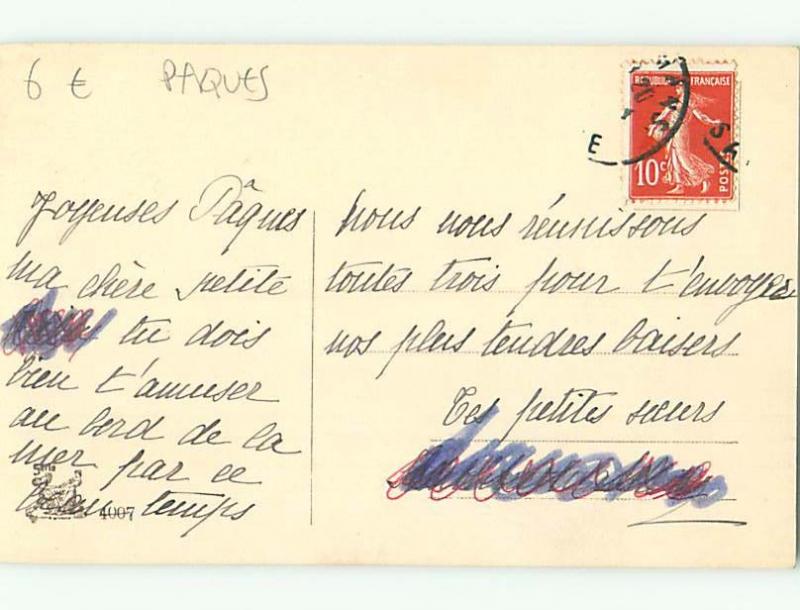 6 € PAQUES
REPUBLIQUE FRANÇAISE
10c
POSTES
E
Joyeuses Pâques
ma chère petite
tu dois
bien t'amuser
au bord de la
mer par ce
beau temps
4007
nous nous réunissons
toutes trois pour t'envoyer
nos plus tendres baisers
Tes petites sœurs